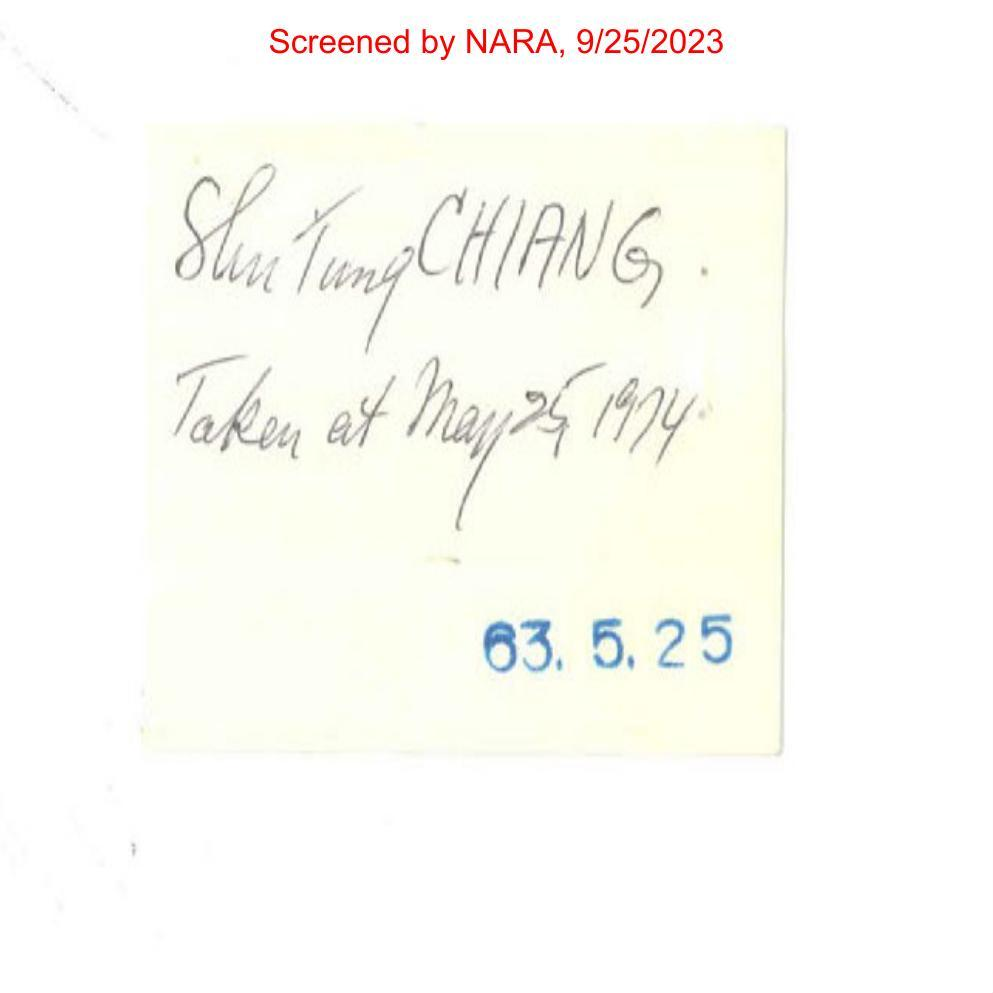 Screened by NARA, 9/25/2023
Shu Tung CHIANG.
Taken at May 25, 1974.
63. 5. 25